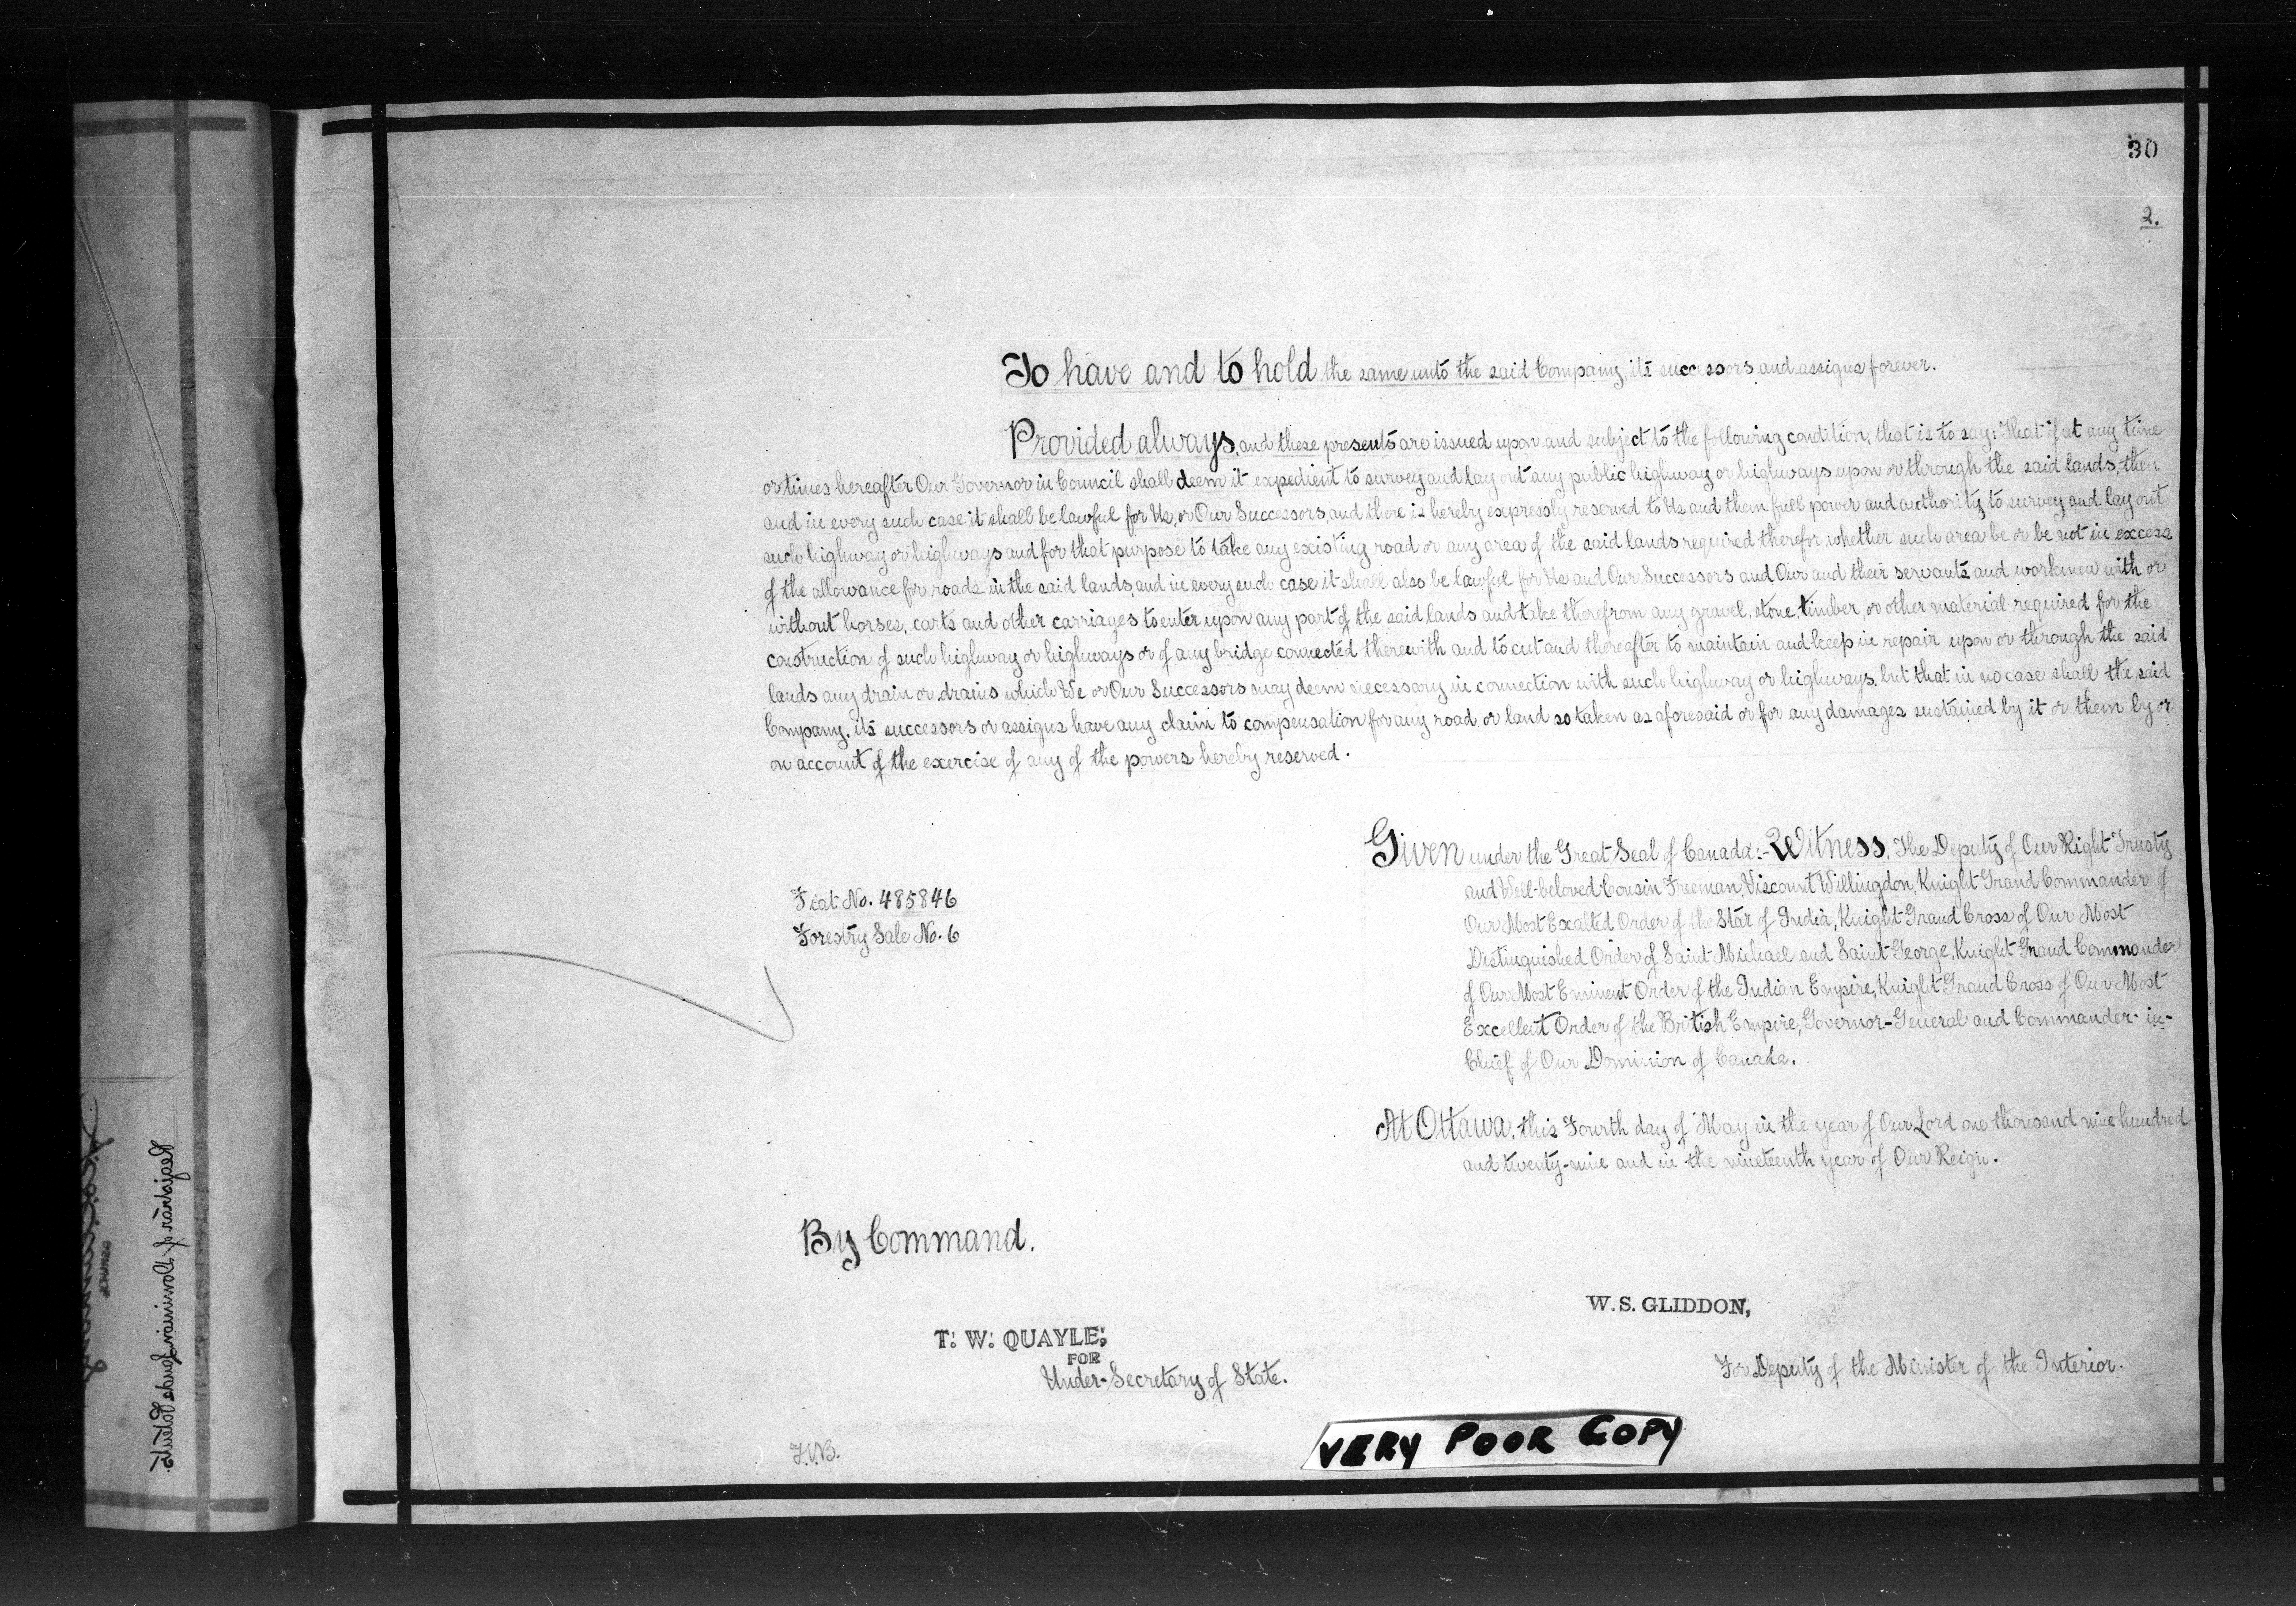 30
2.
To have and to hold the same unto the said Company, its successors and assigns forever.
Provided always, and these presents are issued upon and subject to the following condition, that is to say: That if at any time
or times hereafter Our Governor in Council shall deem it expedient to survey and lay out any public highway or highways upon or through the said lands, then
and in every such case it shall be lawful for Us, or Our Successors, and there is hereby expressly reserved to Us and them full power and authority to survey and lay out
such highway or highways and for that purpose to take any existing road or any area of the said lands required therefor whether such area be or be not in excess
of the allowance for roads in the said lands, and in every such case it shall also be lawful for Us and Our Successors and Our and their servants and workmen with or
without horses, carts and other carriages to enter upon any part of the said lands and take therefrom any gravel, stone, timber, or other material required for the
construction of such highway or highways or of any bridge connected therewith and to cut and thereafter to maintain and keep in repair upon or through the said
lands any drain or drains which We or Our Successors may deem necessary in connection with such highway or highways, but that in no case shall the said
Company, its successors or assigns have any claim to compensation for any road or land so taken as aforesaid or for any damages sustained by it or them by or
on account of the exercise of any of the powers hereby reserved.
Given under the Great Seal of Canada:- Witness, The Deputy of Our Right Trusty
and Well-beloved Cousin Freeman, Viscount Willingdon, Knight Grand Commander of
Our Most Exalted Order of the Star of India, Knight Grand Cross of Our Most
Distinguished Order of Saint Michael and Saint George, Knight Grand Commander
of Our Most Eminent Order of the Indian Empire, Knight Grand Cross of Our Most
Excellent Order of the British Empire, Governor-General and Commander-in-
Chief of Our Dominion of Canada.
Fiat No. 485846
Forestry Sale No. 6
At Ottawa, this Fourth day of May in the year of Our Lord one thousand nine hundred
and twenty-nine and in the nineteenth year of Our Reign.
By Command.
W. S. GLIDDON,
For Deputy of the Minister of the Interior.
T. W. QUAYLE,
FOR
Under-Secretary of State.
VERY POOR COPY
Registrar of Dominion Lands Patents.